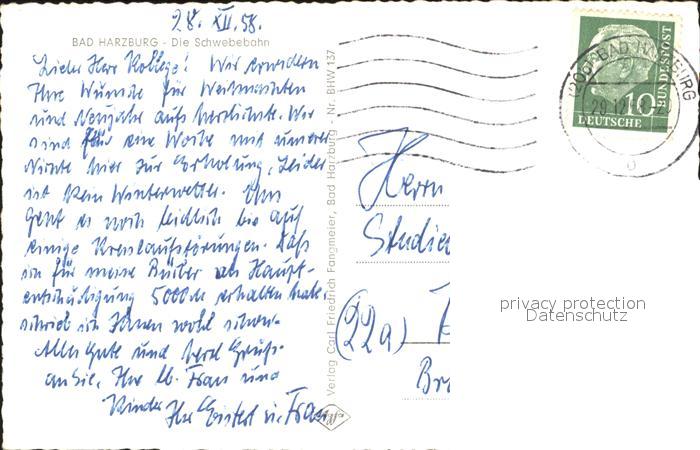 28. XII. 58.
BAD HARZBURG - Die Schwebebahn
Lieber Herr Kollege! Wir erwidern
Ihre Wünsche für Weihnachten
und Neujahr aufs herzlichste. Wir
sind für eine Woche mit unserer
Nichte hier zur Erholung, Leider
ist kein Winterwetter. Uns
geht es noch leidlich bis auf
einige Kreislaufstörungen. Daß
ich für meine Bücher als Haupt-
entschädigung 5000 erhalten habe,
schrieb ich Ihnen wohl schon.
Alles Gute und herzl Grüße
an Sie, Ihre lb. Frau und
Kinder Ihr u. Frau
Verlag Carl Friedrich Fangmeier, Bad Harzburg - Nr. BHW 137
DEUTSCHE
BUNDESPOST
10
BAD HARZBURG
29.12.
Herrn
Studie
(22a)
Br
privacy protection
Datenschutz